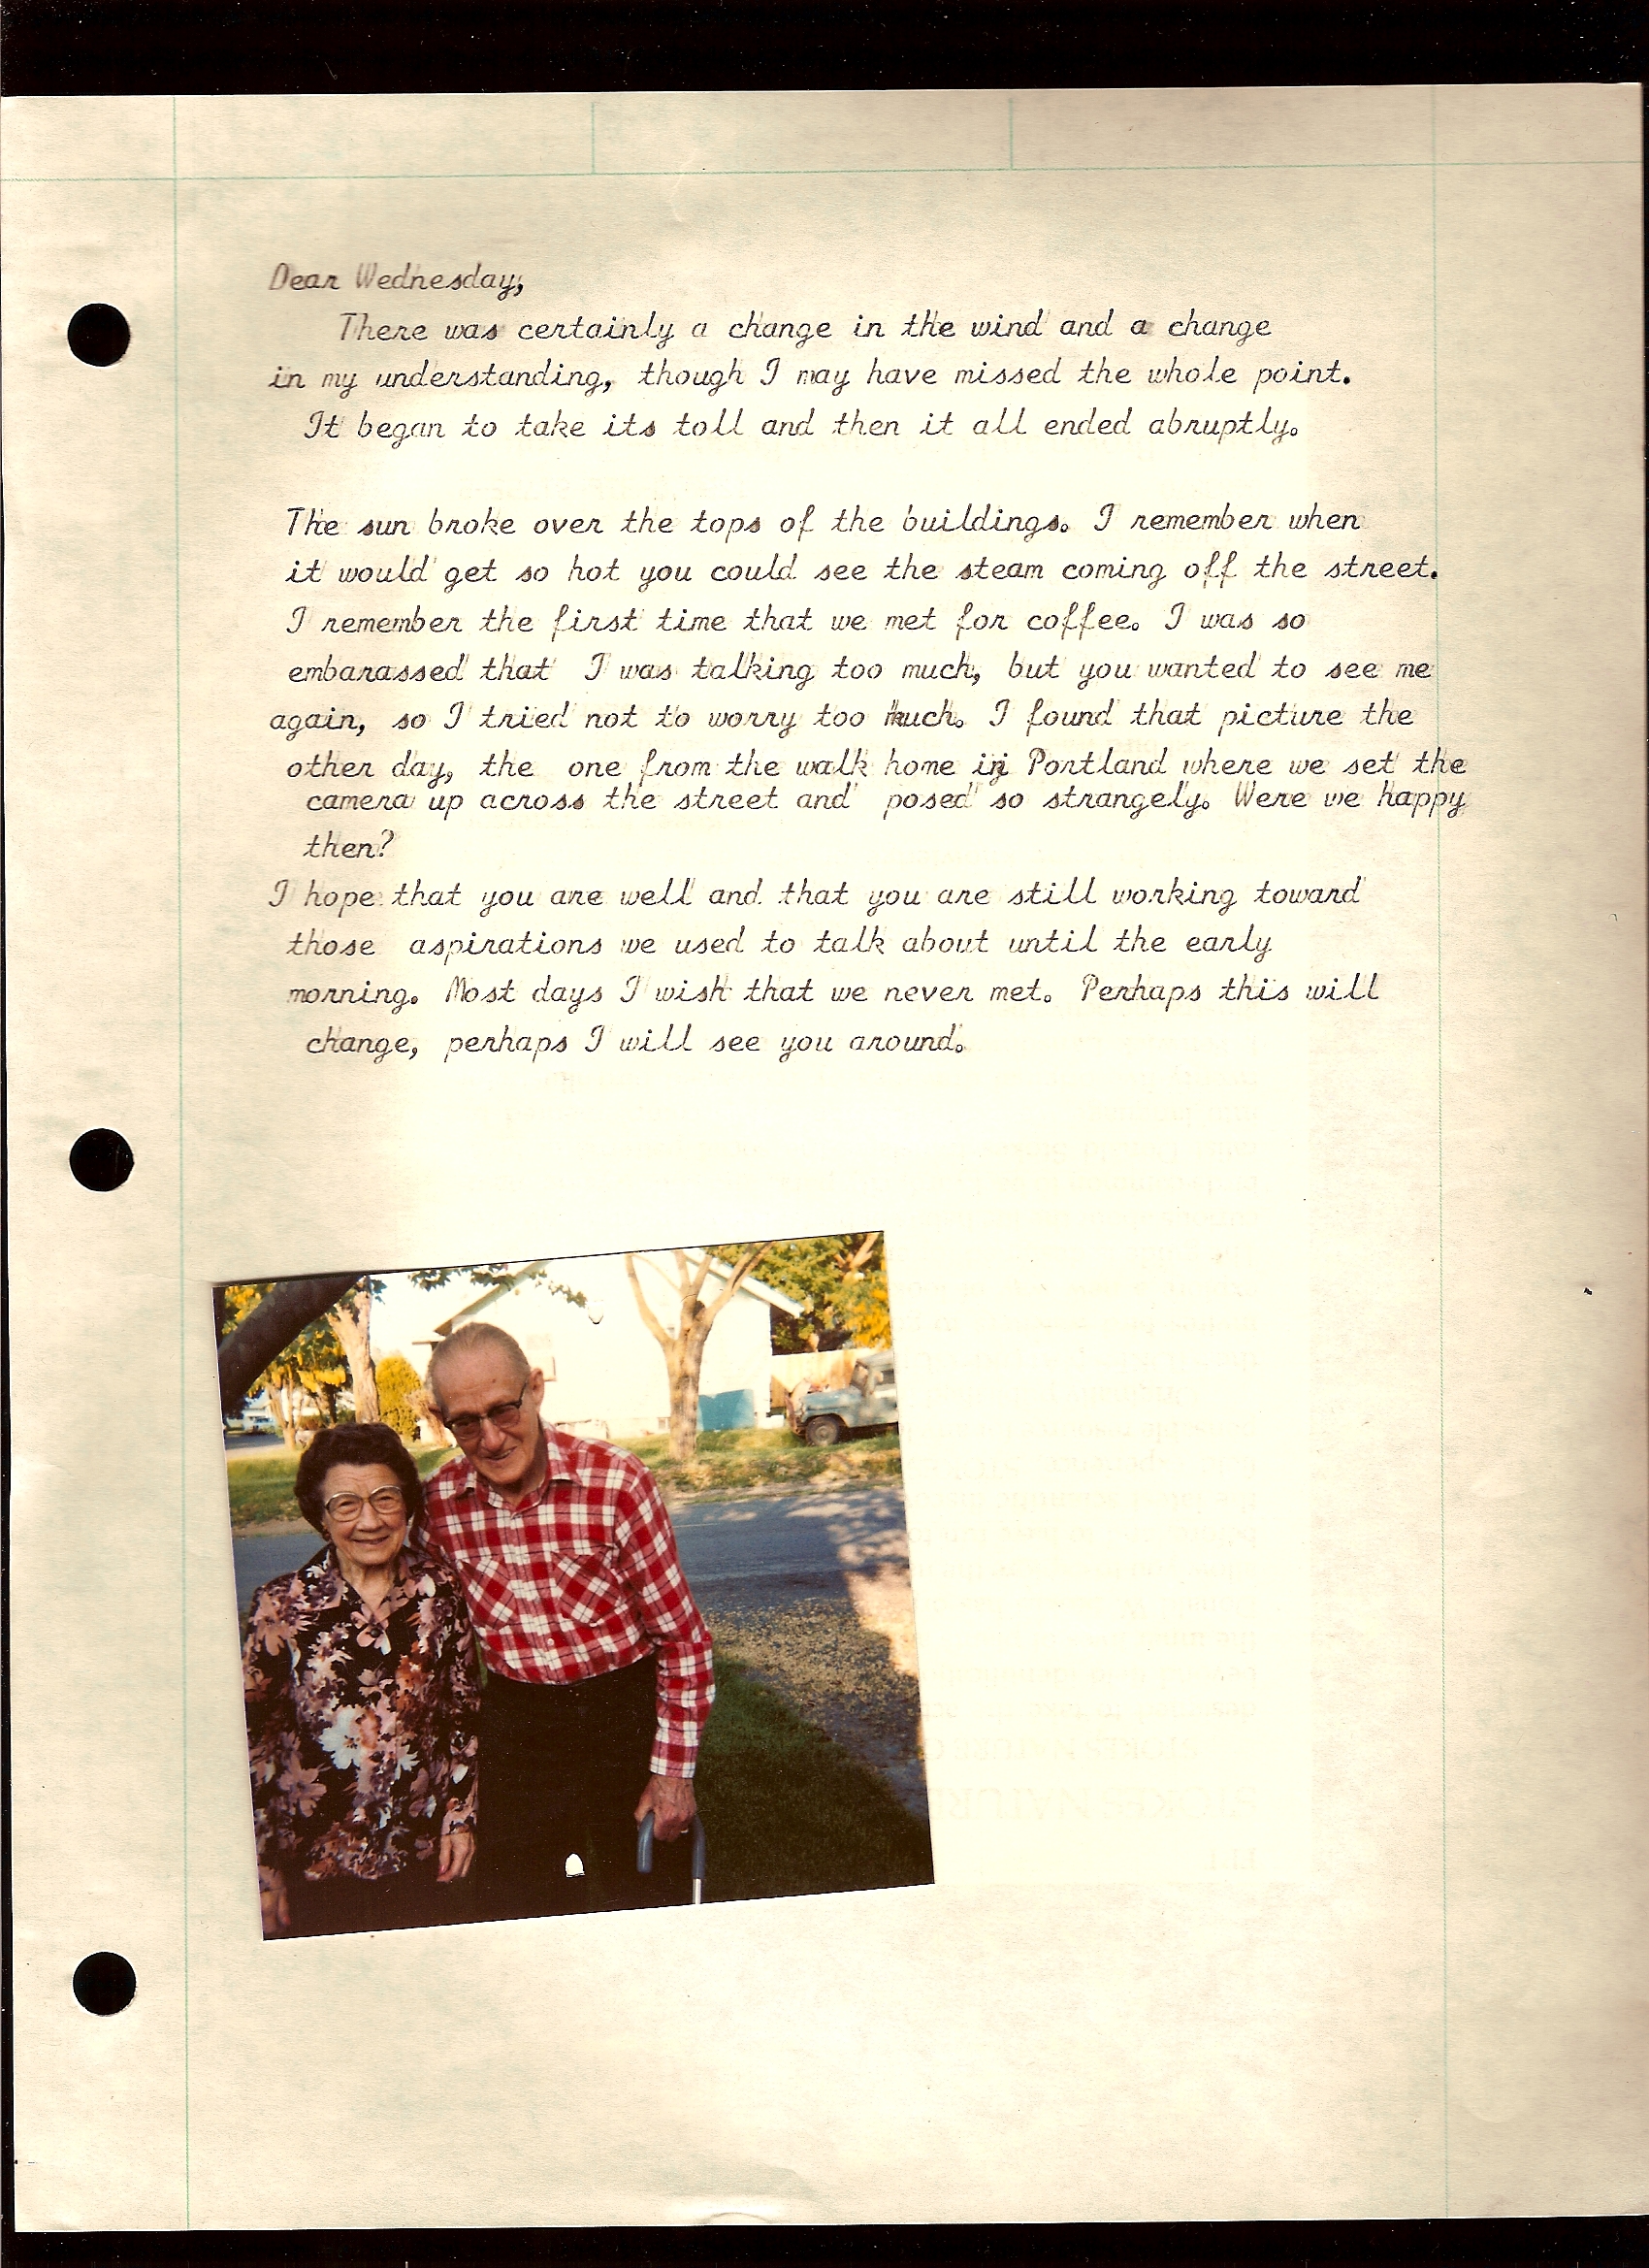 Dear Wednesday,
There was certainly a change in the wind and a change
in my understanding, though I may have missed the whole point.
It began to take its toll and then it all ended abruptly.
The sun broke over the tops of the buildings. I remember when
it would get so hot you could see the steam coming off the street.
I remember the first time that we met for coffee. I was so
embarassed that I was talking too much, but you wanted to see me
again, so I tried not to worry too much. I found that picture the
other day, the one from the walk home in Portland where we set the
camera up across the street and posed so strangely. Were we happy
then?
I hope that you are well and that you are still working toward
those aspirations we used to talk about until the early
morning. Most days I wish that we never met. Perhaps this will
change, perhaps I will see you around.